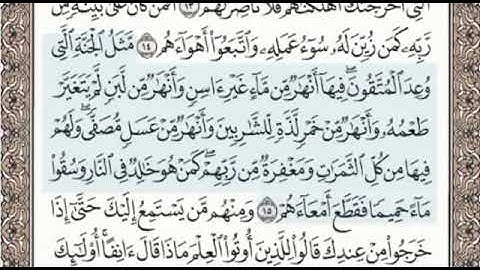 أَخْرَجَتْكَ أَهْلَكْنَٰهُمْ فَلَا نَاصِرَ لَهُمْ ١٣ أَفَمَن كَانَ عَلَىٰ بَيِّنَةٍ مِّن
رَّبِّهِۦ كَمَن زُيِّنَ لَهُۥ سُوٓءُ عَمَلِهِۦ وَٱتَّبَعُوٓا۟ أَهْوَآءَهُم ١٤ مَّثَلُ ٱلْجَنَّةِ ٱلَّتِى
وُعِدَ ٱلْمُتَّقُونَ ۖ فِيهَآ أَنْهَٰرٌ مِّن مَّآءٍ غَيْرِ ءَاسِنٍ وَأَنْهَٰرٌ مِّن لَّبَنٍ لَّمْ يَتَغَيَّرْ
طَعْمُهُۥ وَأَنْهَٰرٌ مِّنْ خَمْرٍ لَّذَّةٍ لِّلشَّٰرِبِينَ وَأَنْهَٰرٌ مِّنْ عَسَلٍ مُّصَفًّى ۖ وَلَهُمْ
فِيهَا مِن كُلِّ ٱلثَّمَرَٰتِ وَمَغْفِرَةٌ مِّن رَّبِّهِمْ ۖ كَمَنْ هُوَ خَٰلِدٌ فِى ٱلنَّارِ وَسُقُوا۟
مَآءً حَمِيمًا فَقَطَّعَ أَمْعَآءَهُمْ ١٥ وَمِنْهُم مَّن يَسْتَمِعُ إِلَيْكَ حَتَّىٰٓ إِذَا
خَرَجُوا۟ مِنْ عِندِكَ قَالُوا۟ لِلَّذِينَ أُوتُوا۟ ٱلْعِلْمَ مَاذَا قَالَ ءَانِفًا ۚ أُو۟لَٰٓئِكَ